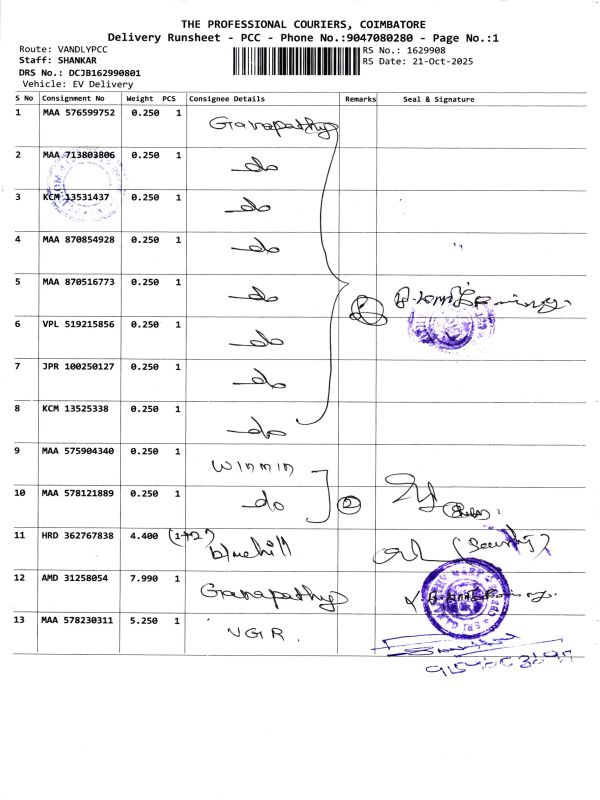 THE PROFESSIONAL COURIERS, COIMBATORE
Delivery Runsheet - PCC - Phone No.:9047080280 - Page No.:1
Route: VANDLYPCC
RS No.: 1629908
Staff: SHANKAR
RS Date: 21-Oct-2025
DRS No.: DCJB162990801
Vehicle: EV Delivery
S No Consignment No Weight PCS Consignee Details Remarks Seal & Signature
1 MAA 576599752 0.250 1 Ganapathy
2 MAA 713803806 0.250 1 do
3 KCM 13531437 0.250 1 do
4 MAA 870854928 0.250 1 do
5 MAA 870516773 0.250 1 do
6 VPL 519215856 0.250 1 do
7 JPR 100250127 0.250 1 do
8 KCM 13525338 0.250 1 do
9 MAA 575904340 0.250 1 Winmin
10 MAA 578121889 0.250 1 do 2
11 HRD 362767838 4.400 (1+2) bluehill
12 AMD 31258054 7.990 1 Ganapathy
13 MAA 578230311 5.250 1 VGR.